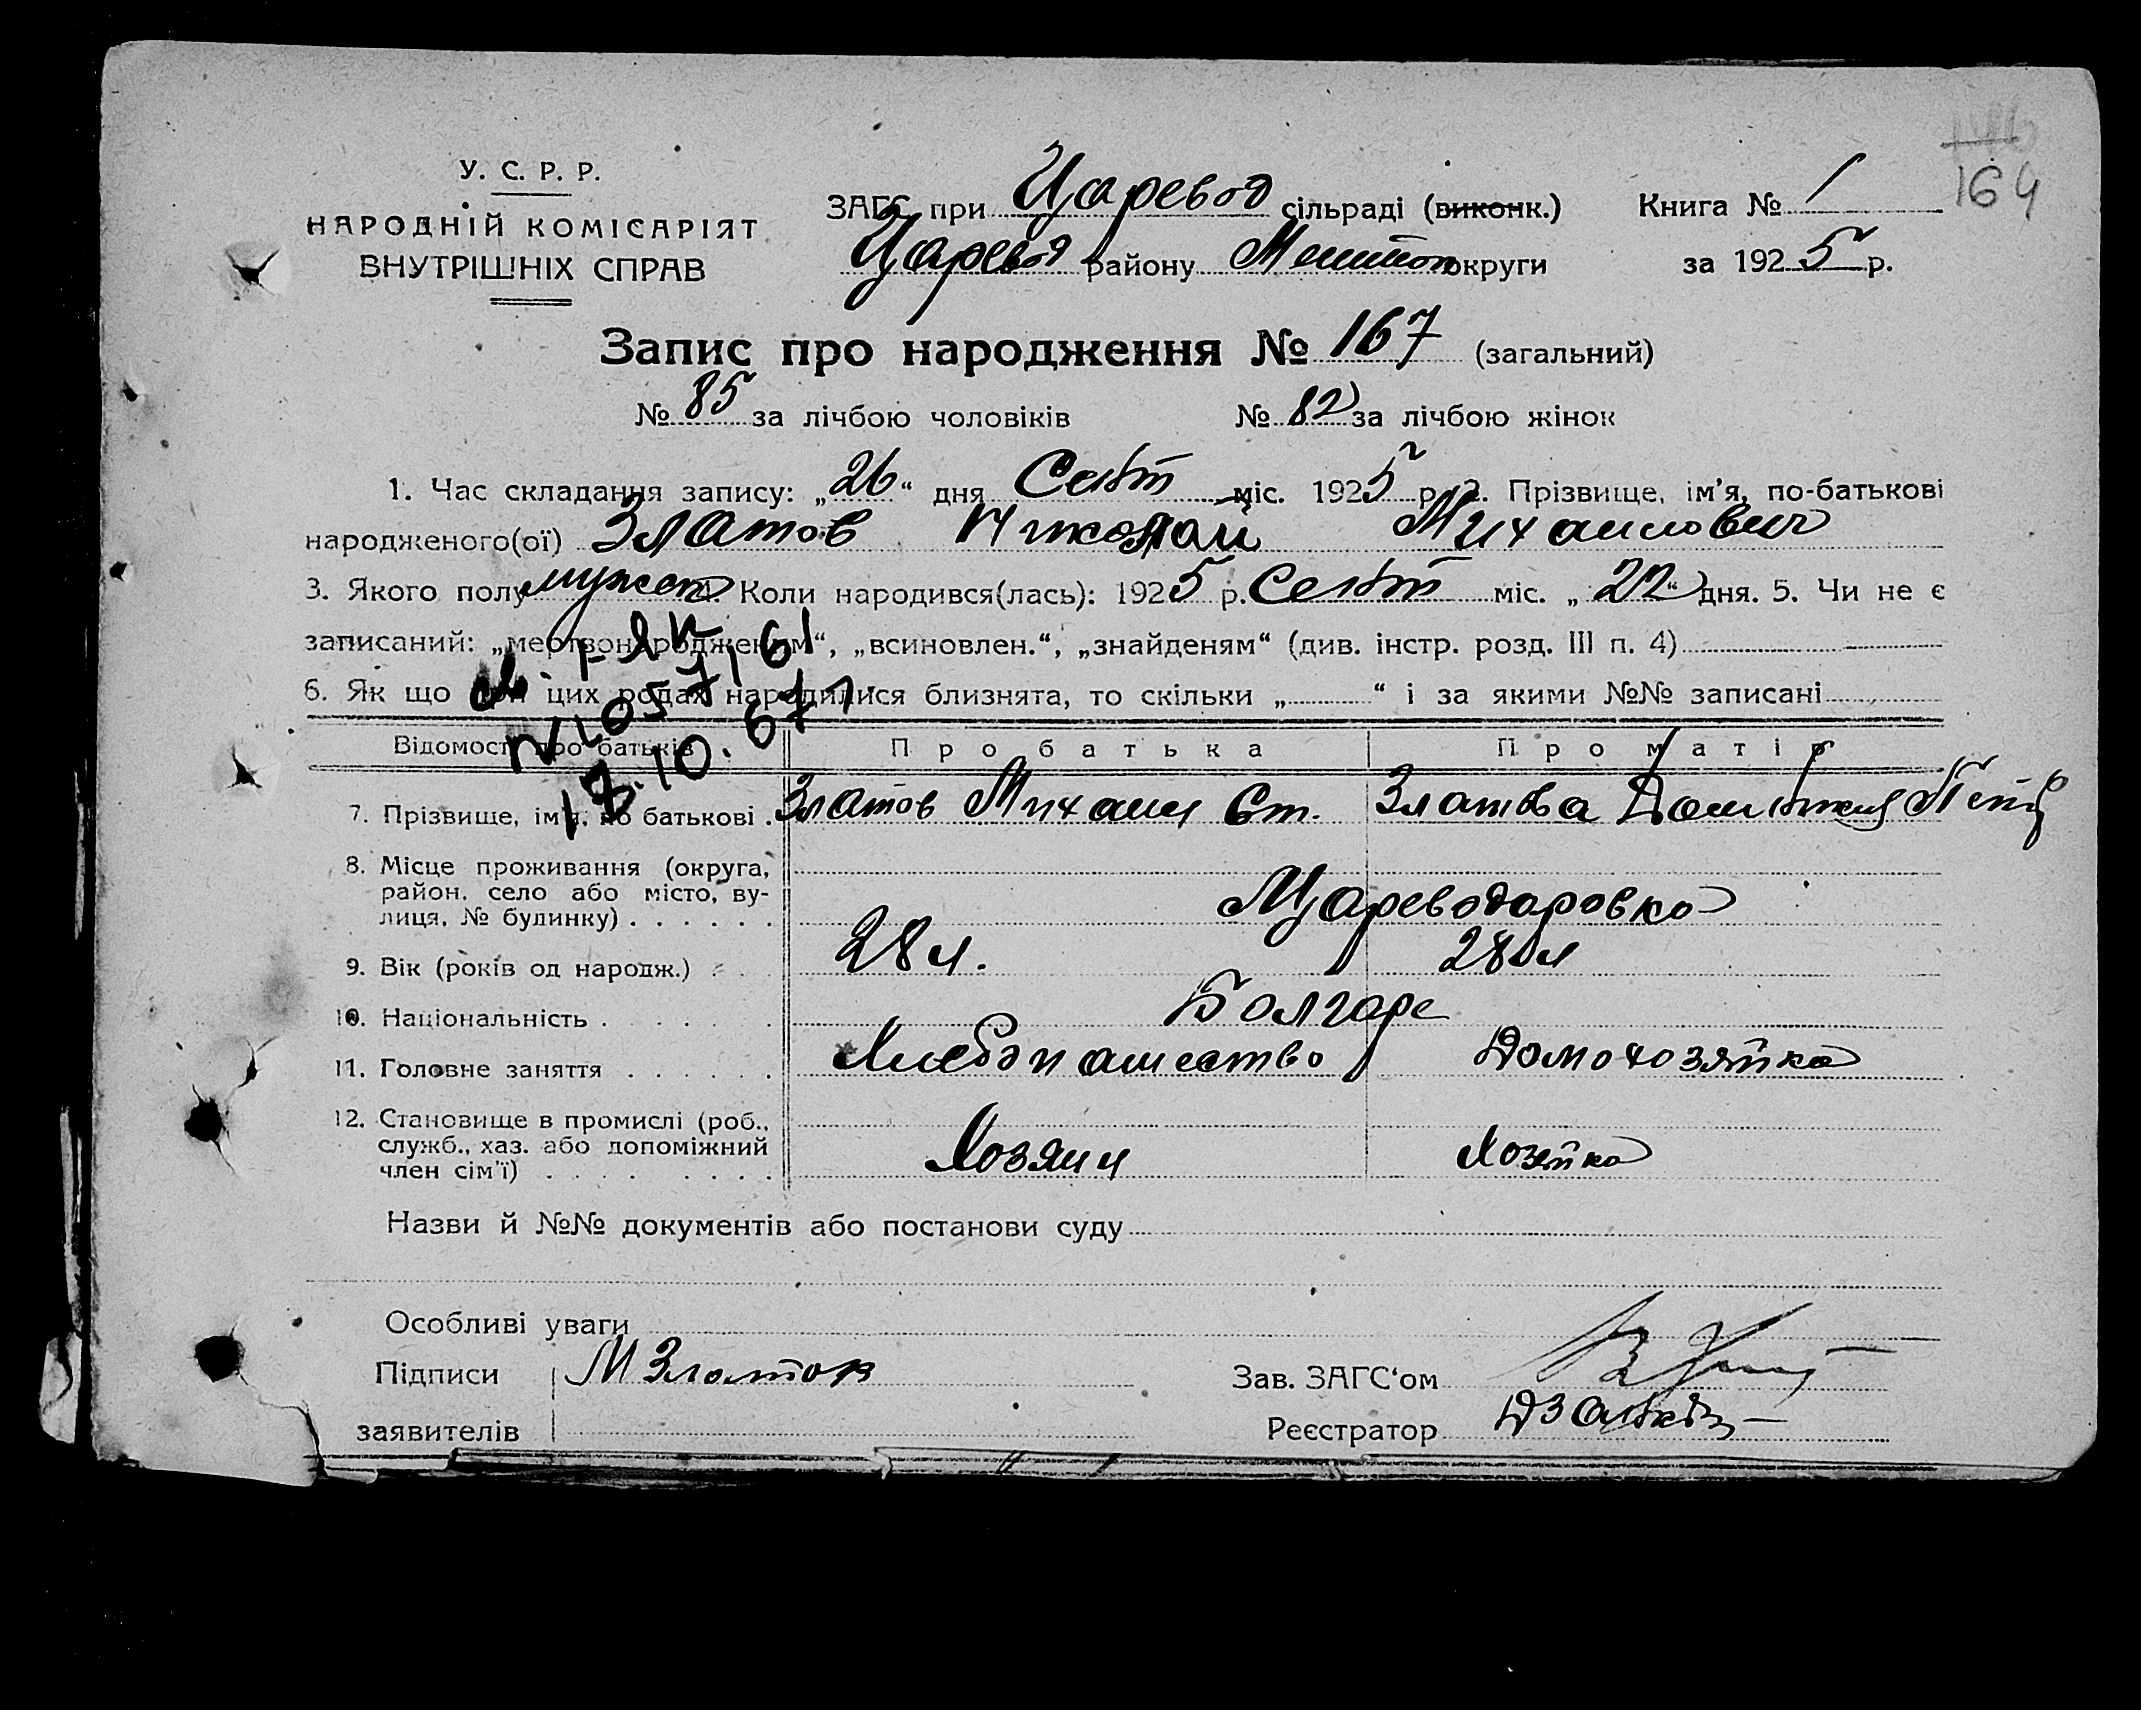 164
У. С. Р. Р.
НАРОДНІЙ КОМІСАРІЯТ
ВНУТРІШНІХ СПРАВ
ЗАГС при Царевод сільраді (виконк.)
Царевод району Мелитоп округи
Книга № 1
за 1925 р.
Запис про народження № 167 (загальний)
№ 85 за лічбою чоловіків № 82 за лічбою жінок
1. Час складання запису: „26“ дня Сент міс. 1925 р. 2. Прізвище, ім'я, по-батькові
народженого(ої) Златов Николай Михаилович
3. Якого полу мужск 4. Коли народився(лась): 1925 р. Сент міс. „22“ дня. 5. Чи не є
записаний: „мертвонародженям“, „всиновлен.“, „знайденям“ (див. інстр. розд. III п. 4)
6. Як що при цих родах народилися близнята, то скільки „ “ і за якими №№ записані
18.10.67
Відомості про батьків Про батька Про матір
7. Прізвище, ім'я, по батькові . Златов Михаил Ст. Златова Петр
8. Місце проживання (округа,
район, село або місто, ву-
лиця, № будинку) . . . . . . Цареводаровка
9. Вік (років од народж.) . . 28 л. 28 л
10. Національність . . . . . . Болгаре
11. Головне заняття . . . . . . Хлебопашество Домохозяйка
12. Становище в промислі (роб.,
служб., хаз. або допоміжний
член сім'ї) . . . . . . . . Хозяин Хозяйка
Назви й №№ документів або постанови суду
Особливі уваги
Підписи М Златов
заявителів
Зав. ЗАГС'ом
Реєстратор